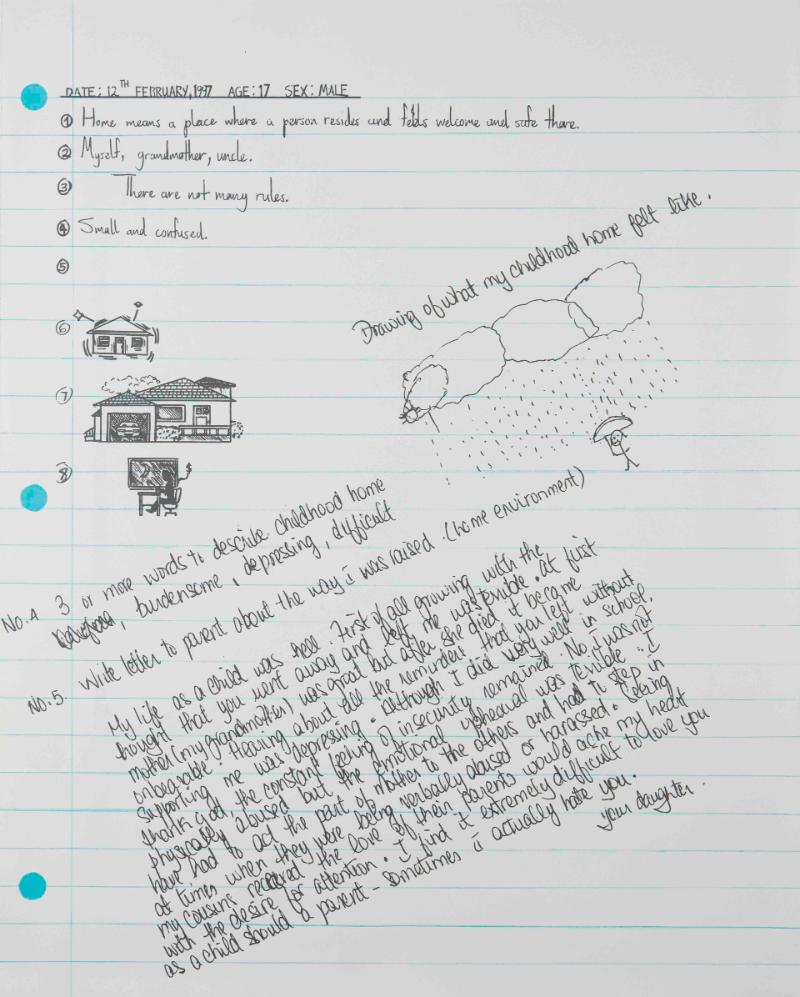 DATE: 12TH FEBRUARY, 1997 AGE: 17 SEX: MALE
① Home means a place where a person resides and feels welcome and safe there.
② Myself, grandmother, uncle.
③ There are not many rules.
④ Small and confused.
⑤
Drawing of what my childhood home felt like.
⑥
⑦
⑧
No.4 3 or more words to describe childhood home
burdensome, depressing, difficult
No.5. Write letter to parent about the way i was raised. (home environment)
My life as a child was hell. First of all growing with the
thought that you went away and left me was terrible. at first
mother (my grandmother) was great but after she died it became
unbearable. Hearing about all the reminders that you left without
supporting me was depressing. although I did work well in school,
thank god, the constant feeling of insecurity remained. No, i was not
physically abused but the emotional upheaval was terrible. I
have had to act the part of mother to the others and had to step in
at times when they were being verbally abused or harassed. Seeing
my cousins received the love of their parents would ache my heart
with the desire for attention. I find it extremely difficult to love you
as a child should a parent - sometimes i actually hate you.
your daughter.